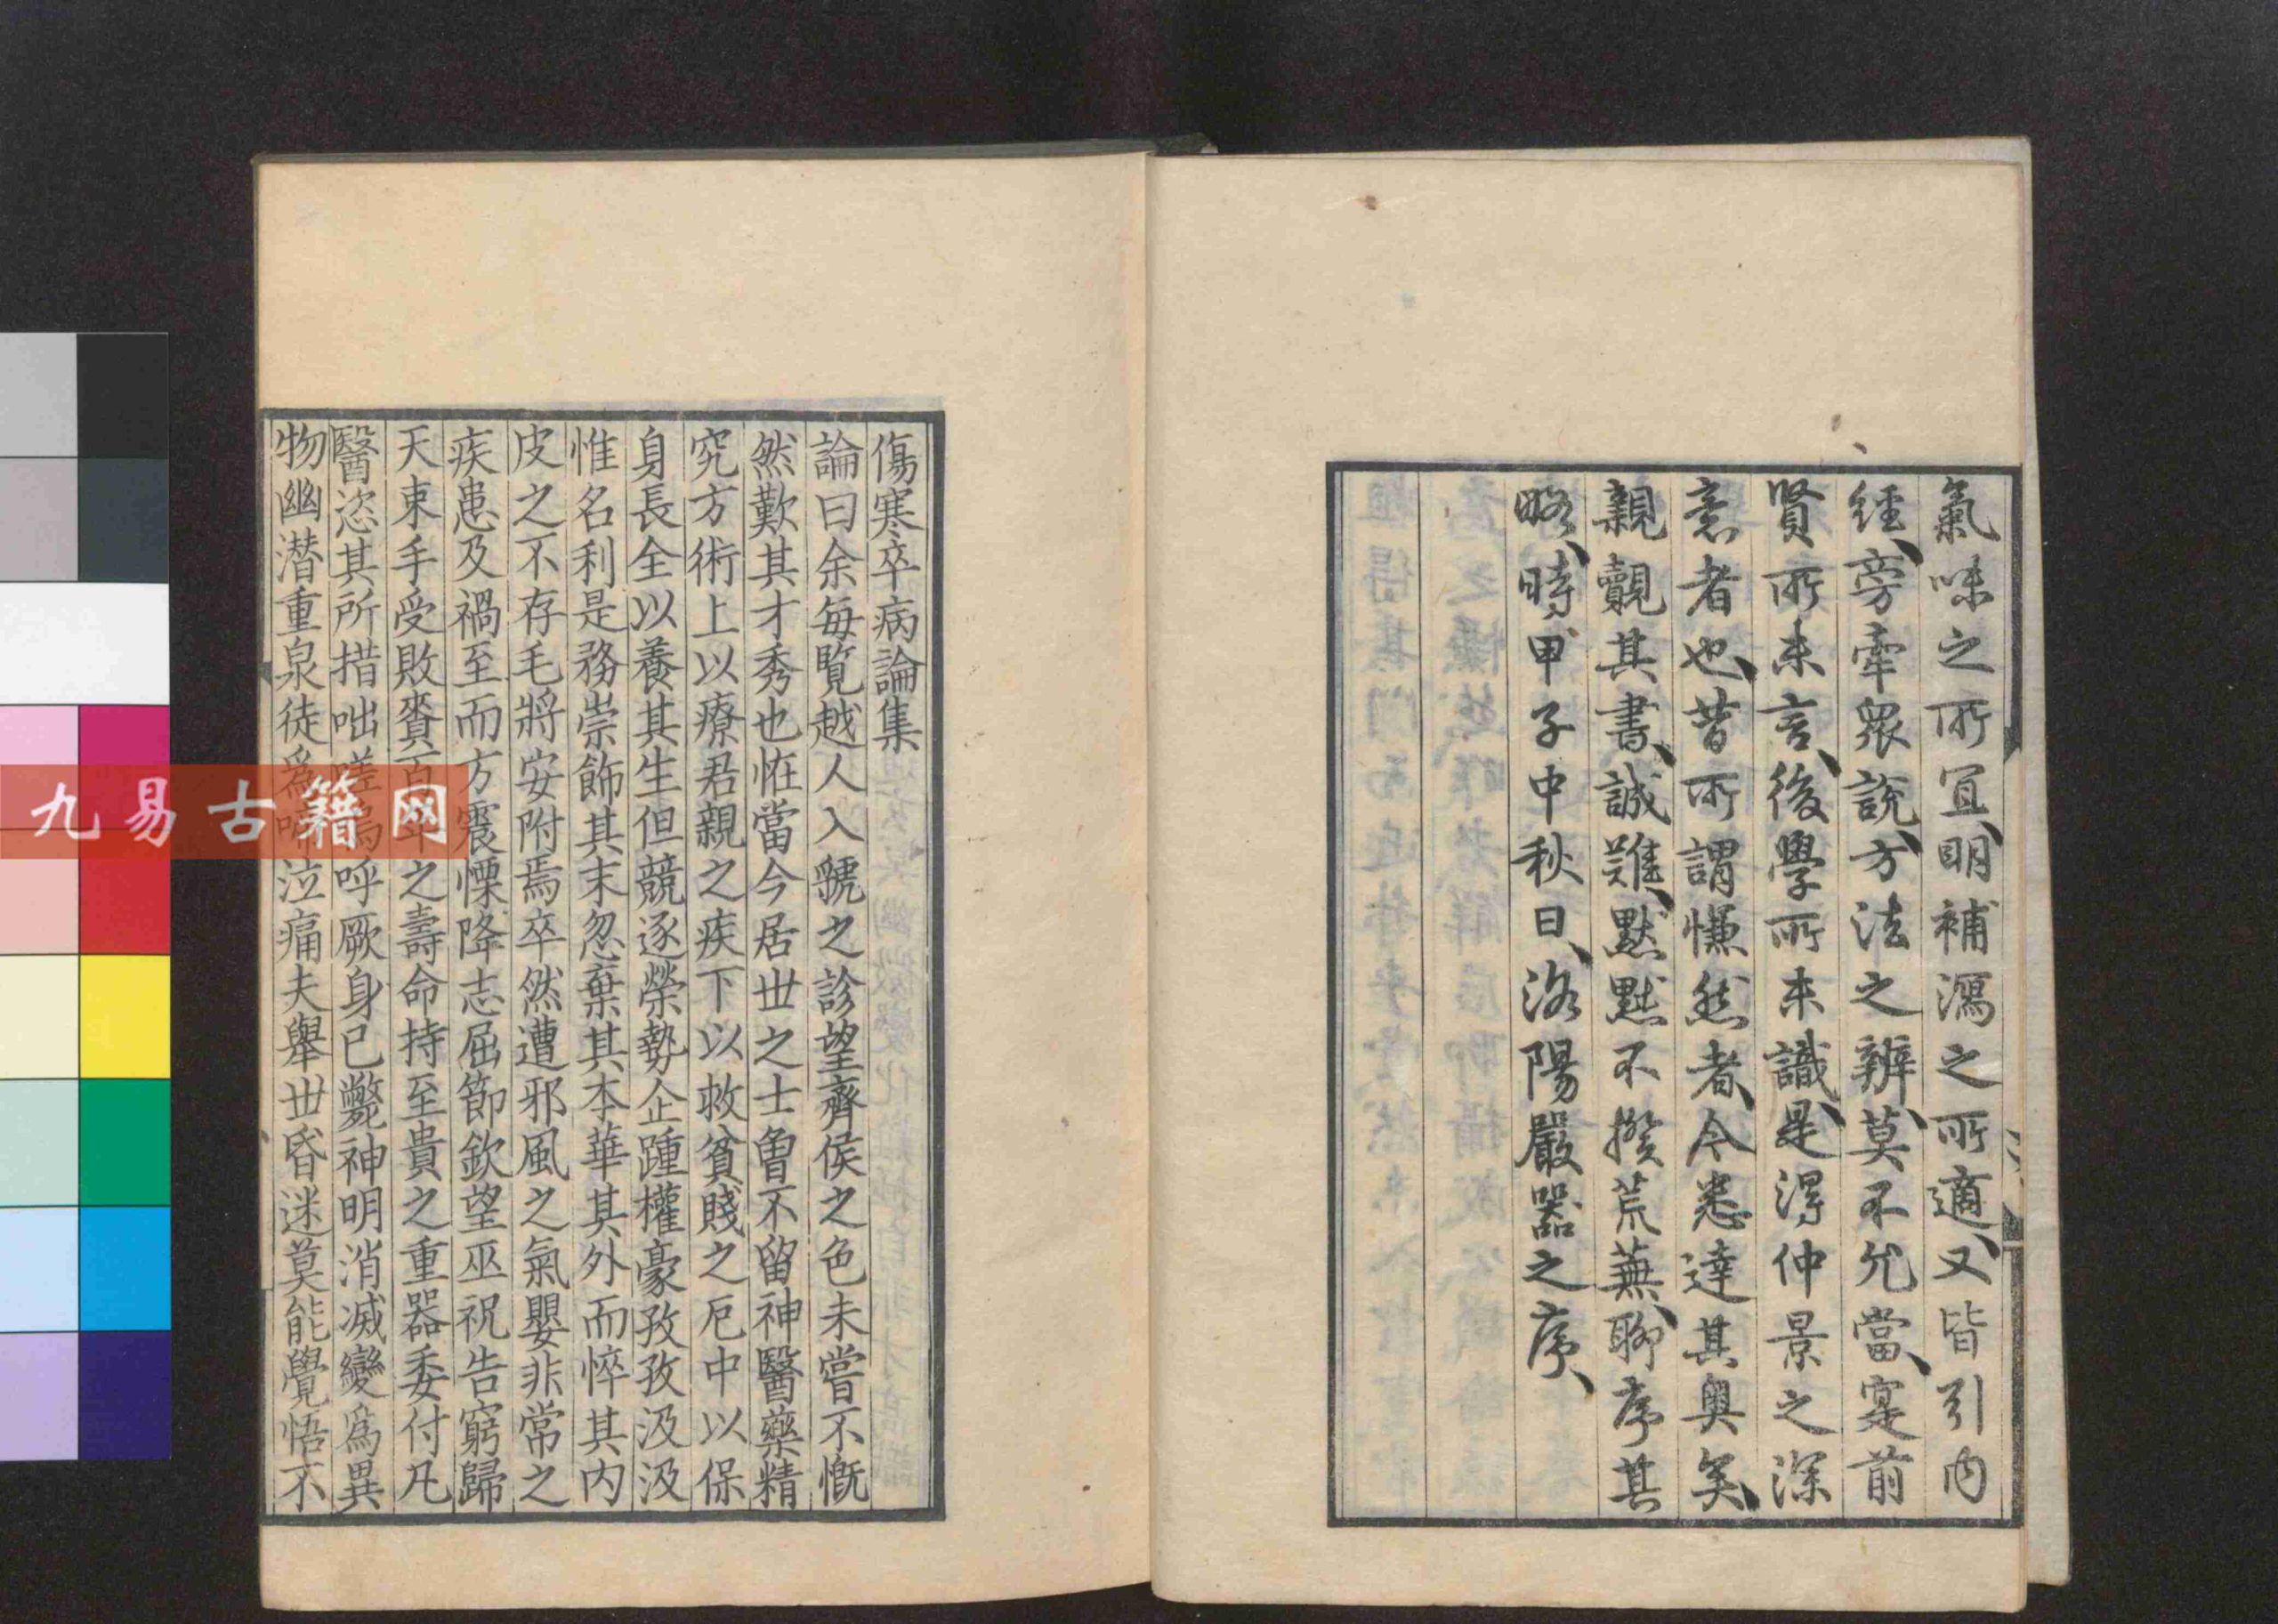 氣味之所宜、明補瀉之所適、又皆引内
經、旁牽衆説、方法之辨、莫不允當、寔前
賢所未言、後學所未識、是得仲景之深
意者也、昔所謂慊然者、今悉達其奥矣、
親覿其書、誠難默默、不揆荒蕪、聊序其
略、時甲子中秋日、洛陽嚴器之序、
傷寒卒病論集
論曰余每覧越人入虢之診望齊侯之色未嘗不慨
然歎其才秀也恠當今居丗之士曽不留神醫藥精
究方術上以療君親之疾下以救貧賤之厄中以保
身長全以養其生但競逐榮勢企踵權豪孜孜汲汲
惟名利是務崇飾其末忽棄其本華其外而悴其内
皮之不存毛將安附焉卒然遭邪風之氣嬰非常之
疾患及禍至而方震慄降志屈節欽望巫祝告窮歸
天束手受敗賫百年之壽命持至貴之重器委付凡
醫恣其所措咄嗟嗚呼厥身已斃神明消滅變爲異
物幽潜重泉徒爲啼泣痛夫舉丗昏迷莫能覺悟不
九易古籍网